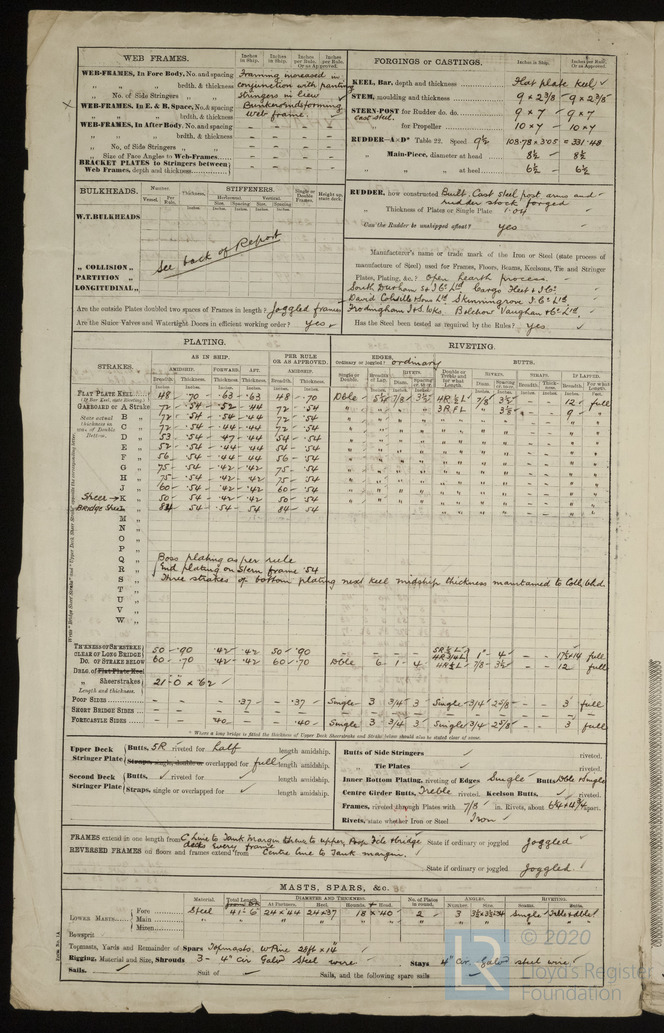 WEB FRAMES.
Inches in Ship. Inches in Ship. Inches per Rule. Inches per Rule. Or as Approved.
WEB-FRAMES, In Fore Body, No. and spacing Framing increased in
" " " brdth. & thickness conjunction with panting
No. of Side Stringers " stringers in lieu
WEB-FRAMES, In E. & B. Space, No. & spacing Bunker ends forming
" " " brdth. & thickness web frame.
WEB-FRAMES, In After Body, No. and spacing
" " " brdth. & thickness
" No. of Side Stringers "
" Size of Face Angles to Web-Frames
BRACKET PLATES to Stringers between
Web Frames, depth and thickness
FORGINGS or CASTINGS.
Inches in Ship. Inches per Rule, Or as Approved.
KEEL, Bar, depth and thickness Flat plate keel
STEM, moulding and thickness 9 x 2 3/8 - 9 x 2 3/8
STERN-POST for Rudder do. do. 9 x 7 - 9 x 7
cast steel.
" for Propeller 10 x 7 - 10 x 7
RUDDER—A×D* Table 22. Speed 9½ 108.78 x 3.05 = 331.48
" Main-Piece, diameter at head 8½ - 8½
" " at heel 6½ - 6½
RUDDER, how constructed Built. Cast steel post, arms and
rudder stock forged
" Thickness of Plates or Single Plate 1.04
Can the Rudder be unshipped afloat? yes
BULKHEADS.
Number. Vessel. Per Rule. Thickness. STIFFENERS. Horizontal. Vertical. Size. Spacing. Size. Spacing. Single or Double Frames. Height up, state deck.
W.T. BULKHEADS
See back of Report
" COLLISION "
PARTITION "
LONGITUDINAL "
Are the outside Plates doubled two spaces of Frames in length? Joggled frames
Are the Sluice Valves and Watertight Doors in efficient working order? yes
Manufacturer's name or trade mark of the Iron or Steel (state process of
manufacture of Steel) used for Frames, Floors, Beams, Keelsons, Tie and Stringer
Plates, Plating, &c.? Open hearth process.
South Durham S & I Co Ltd Cargo Fleet I Co.
David Colville & Sons Ltd Skinningrove I. Co Ltd
Frodingham I & S. Wks. Bolckow Vaughan & Co Ltd.
Has the Steel been tested as required by the Rules? yes.
PLATING.
AS IN SHIP. PER RULE OR AS APPROVED.
STRAKES. AMIDSHIP. FORWARD. AFT. AMIDSHIP.
Breadth. Thickness. Thickness. Thickness. Breadth. Thickness.
RIVETING.
EDGES. Ordinary or joggled? ordinary BUTTS.
Single or Double. Breadth of Lap. RIVETS. Diam. Spacing cr. to cr. Double or Treble and for what Length. RIVETS. Diam. Spacing cr. to cr. STRAPS. Breadth. Thickness. IF LAPPED. Breadth. For what Length.
FLAT PLATE KEEL 48 .70 .63 .63 48 .70 Dble 7/8 3½ 4R ½ L 7/8 3½ - - 12 full
GARBOARD or A Strake 72 .54 .52 .44 72 .54 " " " " 3R FL " 3½ - - 9 "
B " 72 .54 .54 .44 72 .54
C " 72 .54 .44 .44 72 .54
D " 53 .54 .47 .44 54 .54
E " 52 .54 .44 .44 54 .54
F " 56 .54 .44 .44 56 .54
G " 75 .54 .42 .42 75 .54
H " 75 .54 .42 .42 75 .54
J " 60 .54 .42 .42 60 .54
Sheer → K " 50 .54 .42 .42 50 .54
Bridge Sheer L " 84 .54 .54 .54 84 .54
M "
N "
O "
P "
Q " Boss plating as per rule
R " End plating on Stern frame .54
S " Three strakes of bottom plating next keel midship thickness maintained to Coll. bhd.
T "
U "
V "
W "
THICKNESS OF SHEERSTRAKE
CLEAR OF LONG BRIDGE 50 .90 .42 .42 50 .90 - - - - 1" 4 - - full
DO. OF STRAKE BELOW 60 .70 .42 .42 60 .70 Dble 6 1 4 4R ½ L 7/8 3½ - - 12 full
DBLG. OF Flat Plate Keel
" Sheerstrakes 21-0 x .62
Length and thickness.
POOP SIDES .37 .37 Single 3 3/4 3 Single 3/4 2 5/8 - - 3 full
SHORT BRIDGE SIDES
FORECASTLE SIDES .40 .40 Single 3 3/4 3 Single 3/4 2 5/8 - - 3 full
* Where a long bridge is fitted the thickness of Upper Deck Sheerstrake and Strake below should also be stated clear of same.
Upper Deck Stringer Plate Butts, 5R riveted for half length amidship.
Straps, single, double or overlapped for full length amidship.
Second Deck Stringer Plate Butts, riveted for length amidship.
Straps, single or overlapped for length amidship.
Butts of Side Stringers riveted.
" Tie Plates riveted.
Inner Bottom Plating, riveting of Edges Single Butts Dble & Single
Centre Girder Butts, Treble riveted. Keelson Butts, riveted.
Frames, riveted through Plates with 7/8 in. Rivets, about apart.
Rivets, state whether Iron or Steel Iron
FRAMES extend in one length from C Line to Tank Margin thence to upper, Poop Fcle & bridge State if ordinary or joggled Joggled
decks every frame
REVERSED FRAMES on floors and frames extend from Centre line to Tank margin.
State if ordinary or joggled Joggled.
MASTS, SPARS, &c.
Material. Total Length. DIAMETER AND THICKNESS. At Partners. Heel. Hounds. Head. No. of Plates in round. ANGLES. Number. Size. RIVETING. Seams. Butts.
LOWER MASTS Fore Steel 41-6 24 x .44 24 x .37 18 x .40 2 3 3½x3½x.34 Single Treble & dble
Main " " " " " " " " " "
Mizen
Bowsprit
Topmasts, Yards and Remainder of Spars Topmasts. W Pine 28ft x 14
Rigging, Material and Size, Shrouds 3 - 4" Cir Galvd Steel wire Stays 4" Cir. Galvd steel wire
Sails. Suit of Sails, and the following spare sails
© 2020
Lloyd's Register
Foundation
LR